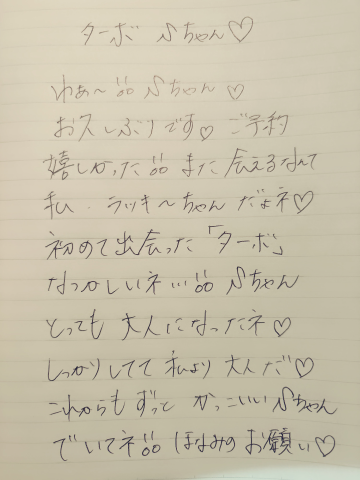 ターボ Sちゃん♡
ゆあ〜 Sちゃん♡
お久しぶりです♡ ご予約
嬉しかった また会えるなんて
私、ラッキ〜ちゃん だよネ♡
初めて出会った「ターボ」
なつかしいネ… Sちゃん
とっても 大人になったネ♡
しっかりしてて 私より 大人だ♡
これからもずっと かっこいいSちゃん
でいてネ ほなみのお願い♡